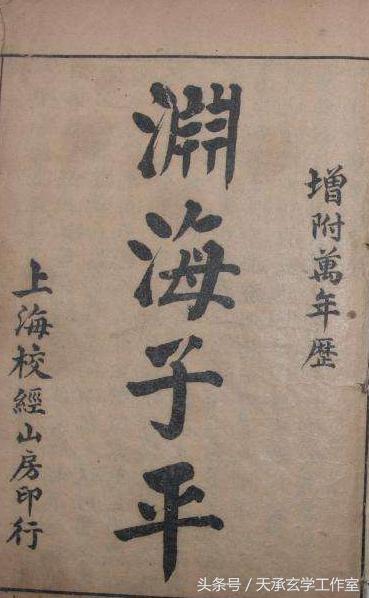 增附萬年歷
淵海子平
上海校經山房印行
头条号/天承玄学工作室